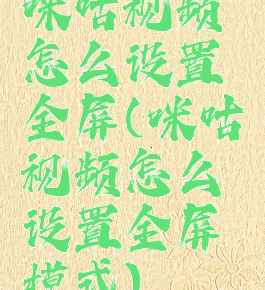 咪咕视频
怎么设置
全屏(咪咕
视频怎么
设置全屏
模式)